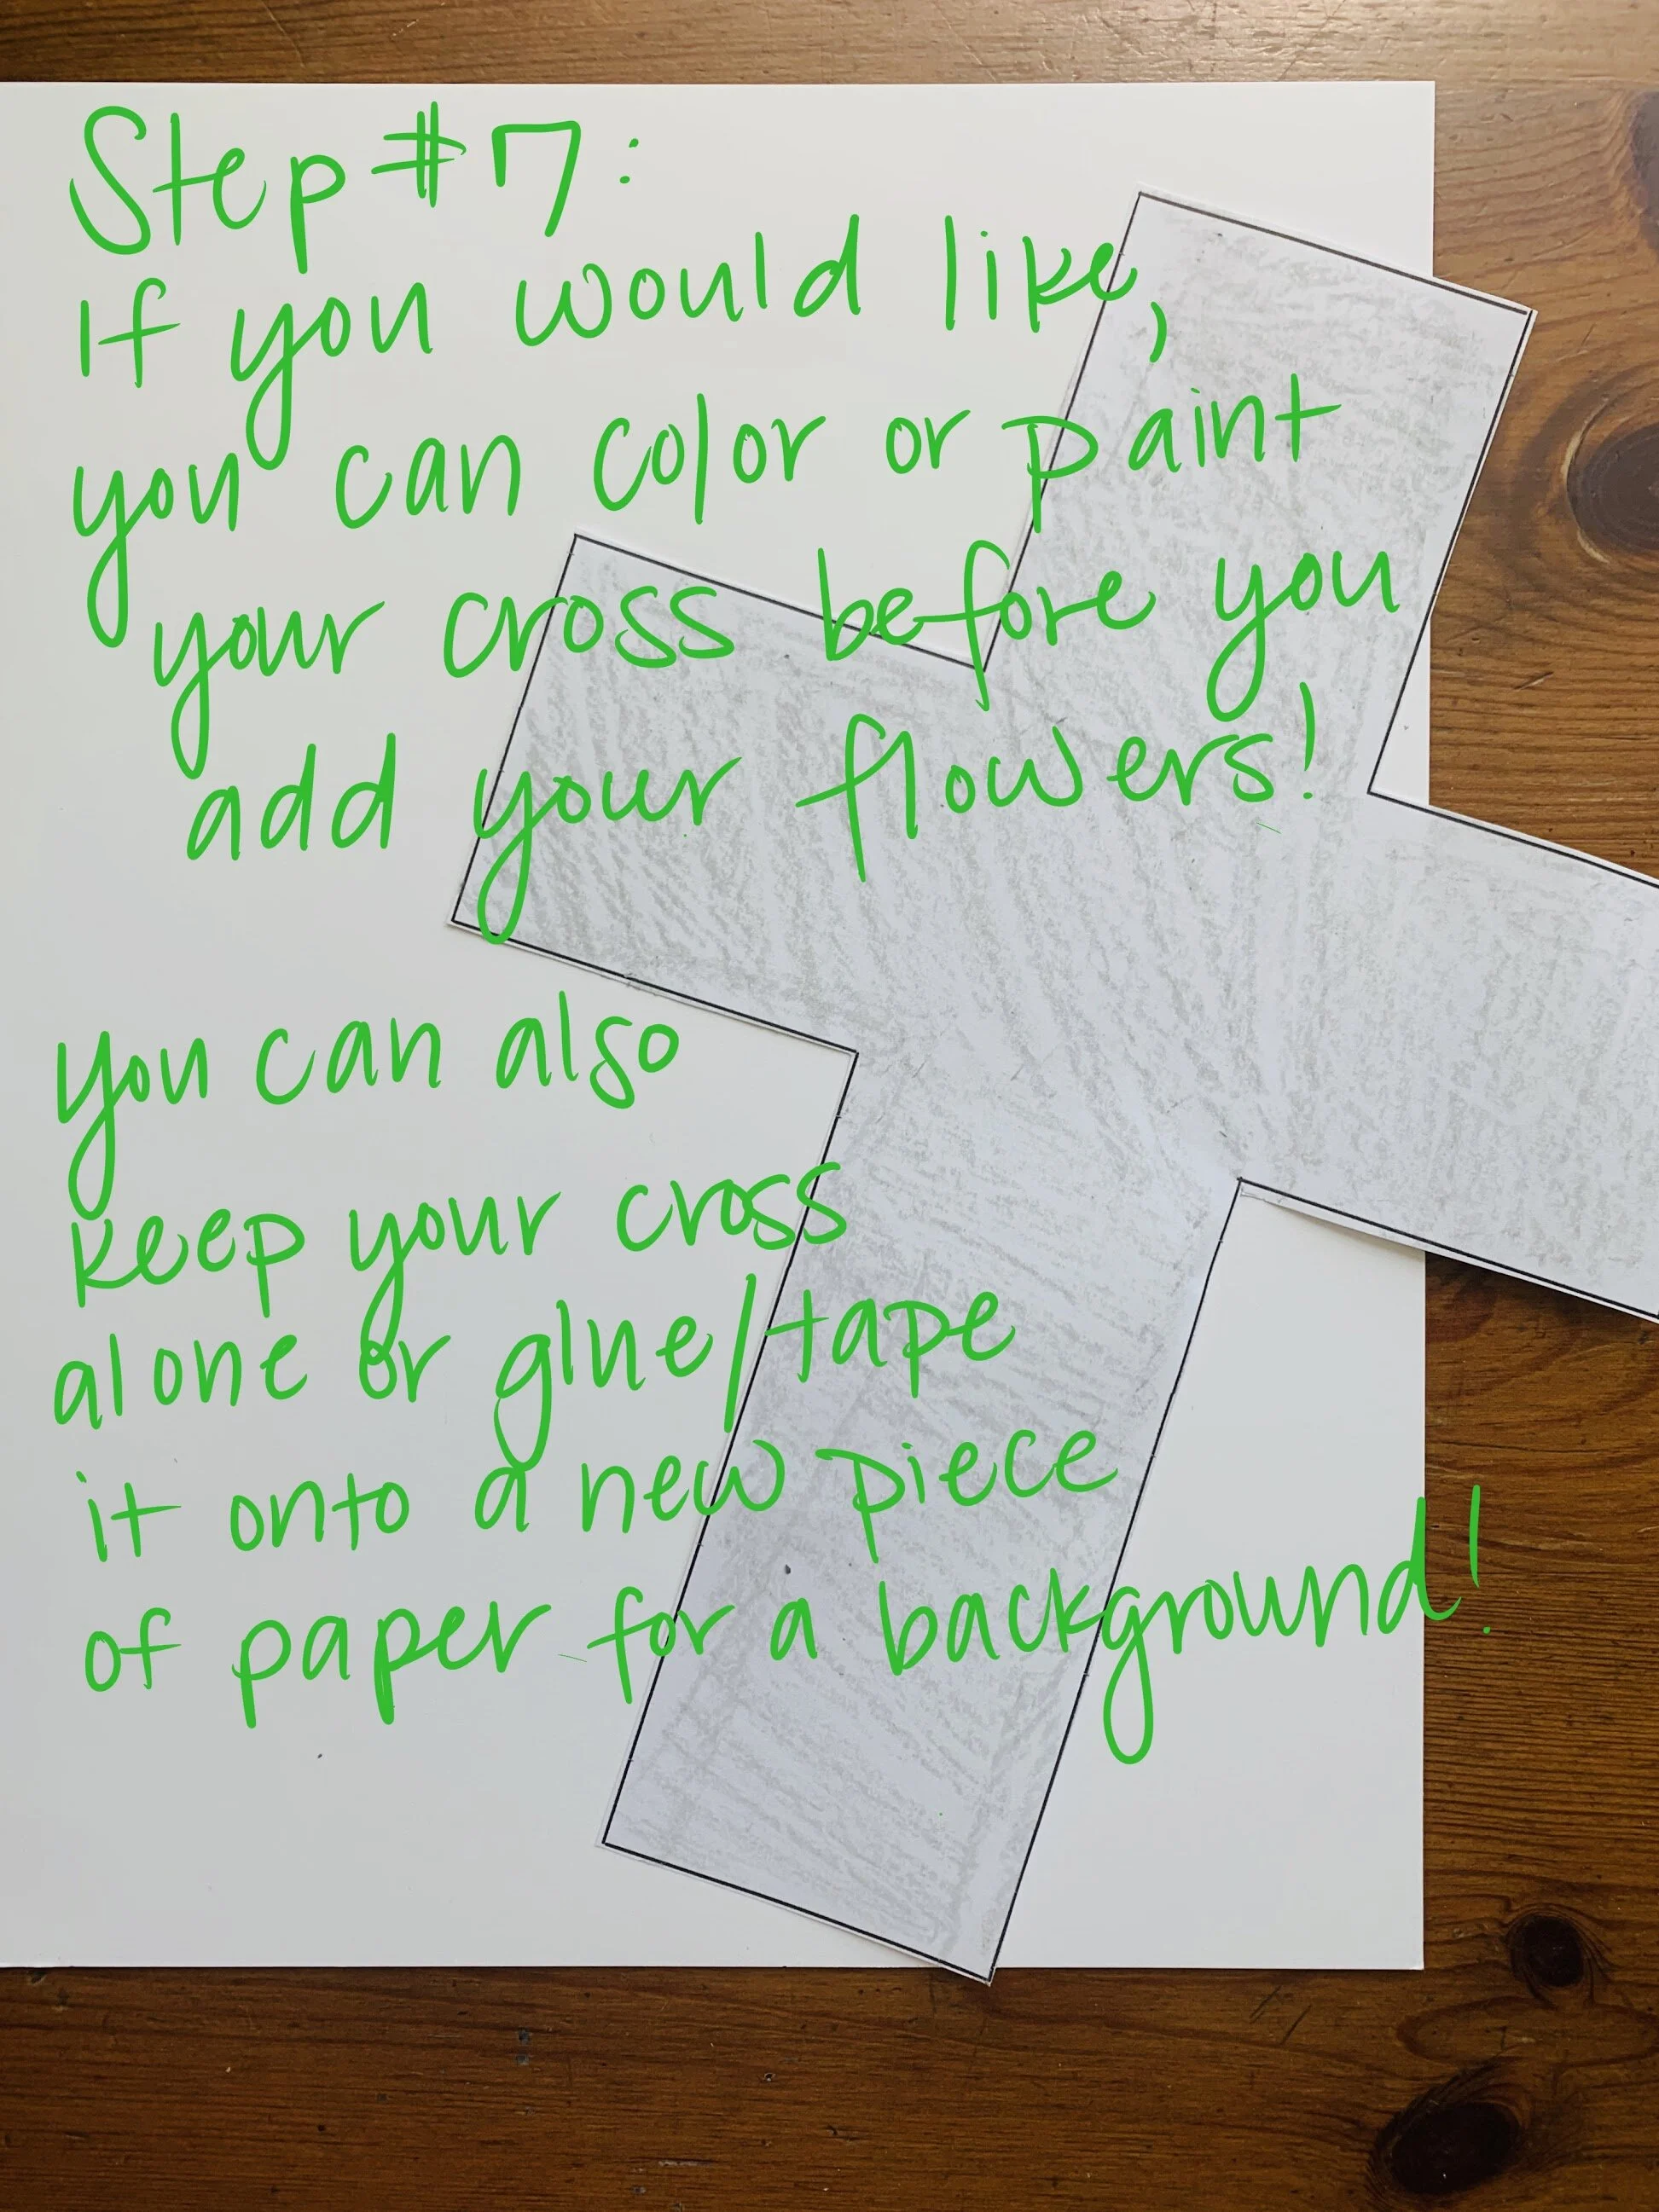 Step #7:
If you would like,
you can color or paint
your cross before you
add your flowers!
you can also
keep your cross
alone or glue/tape
it onto a new piece
of paper for a background!